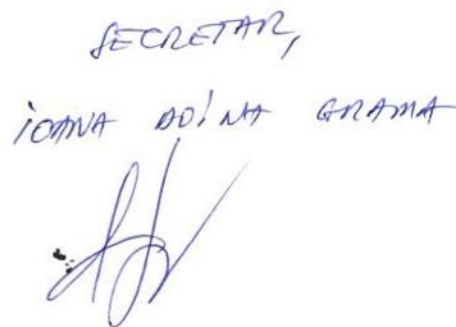 SECRETAR,
IOANA ADINA GRAMA